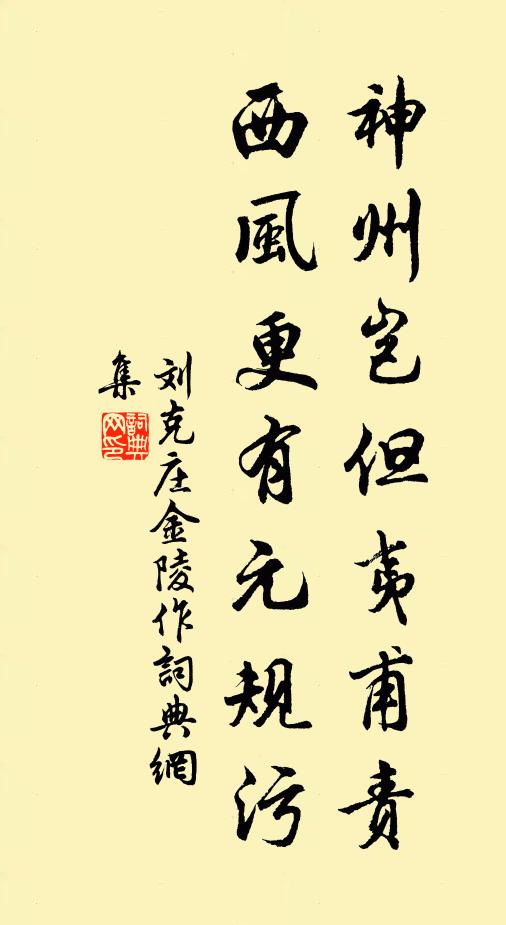 神州岂但夷甫责
西風更有元规污
刘克庄金陵作詞典網
集
詞典網印